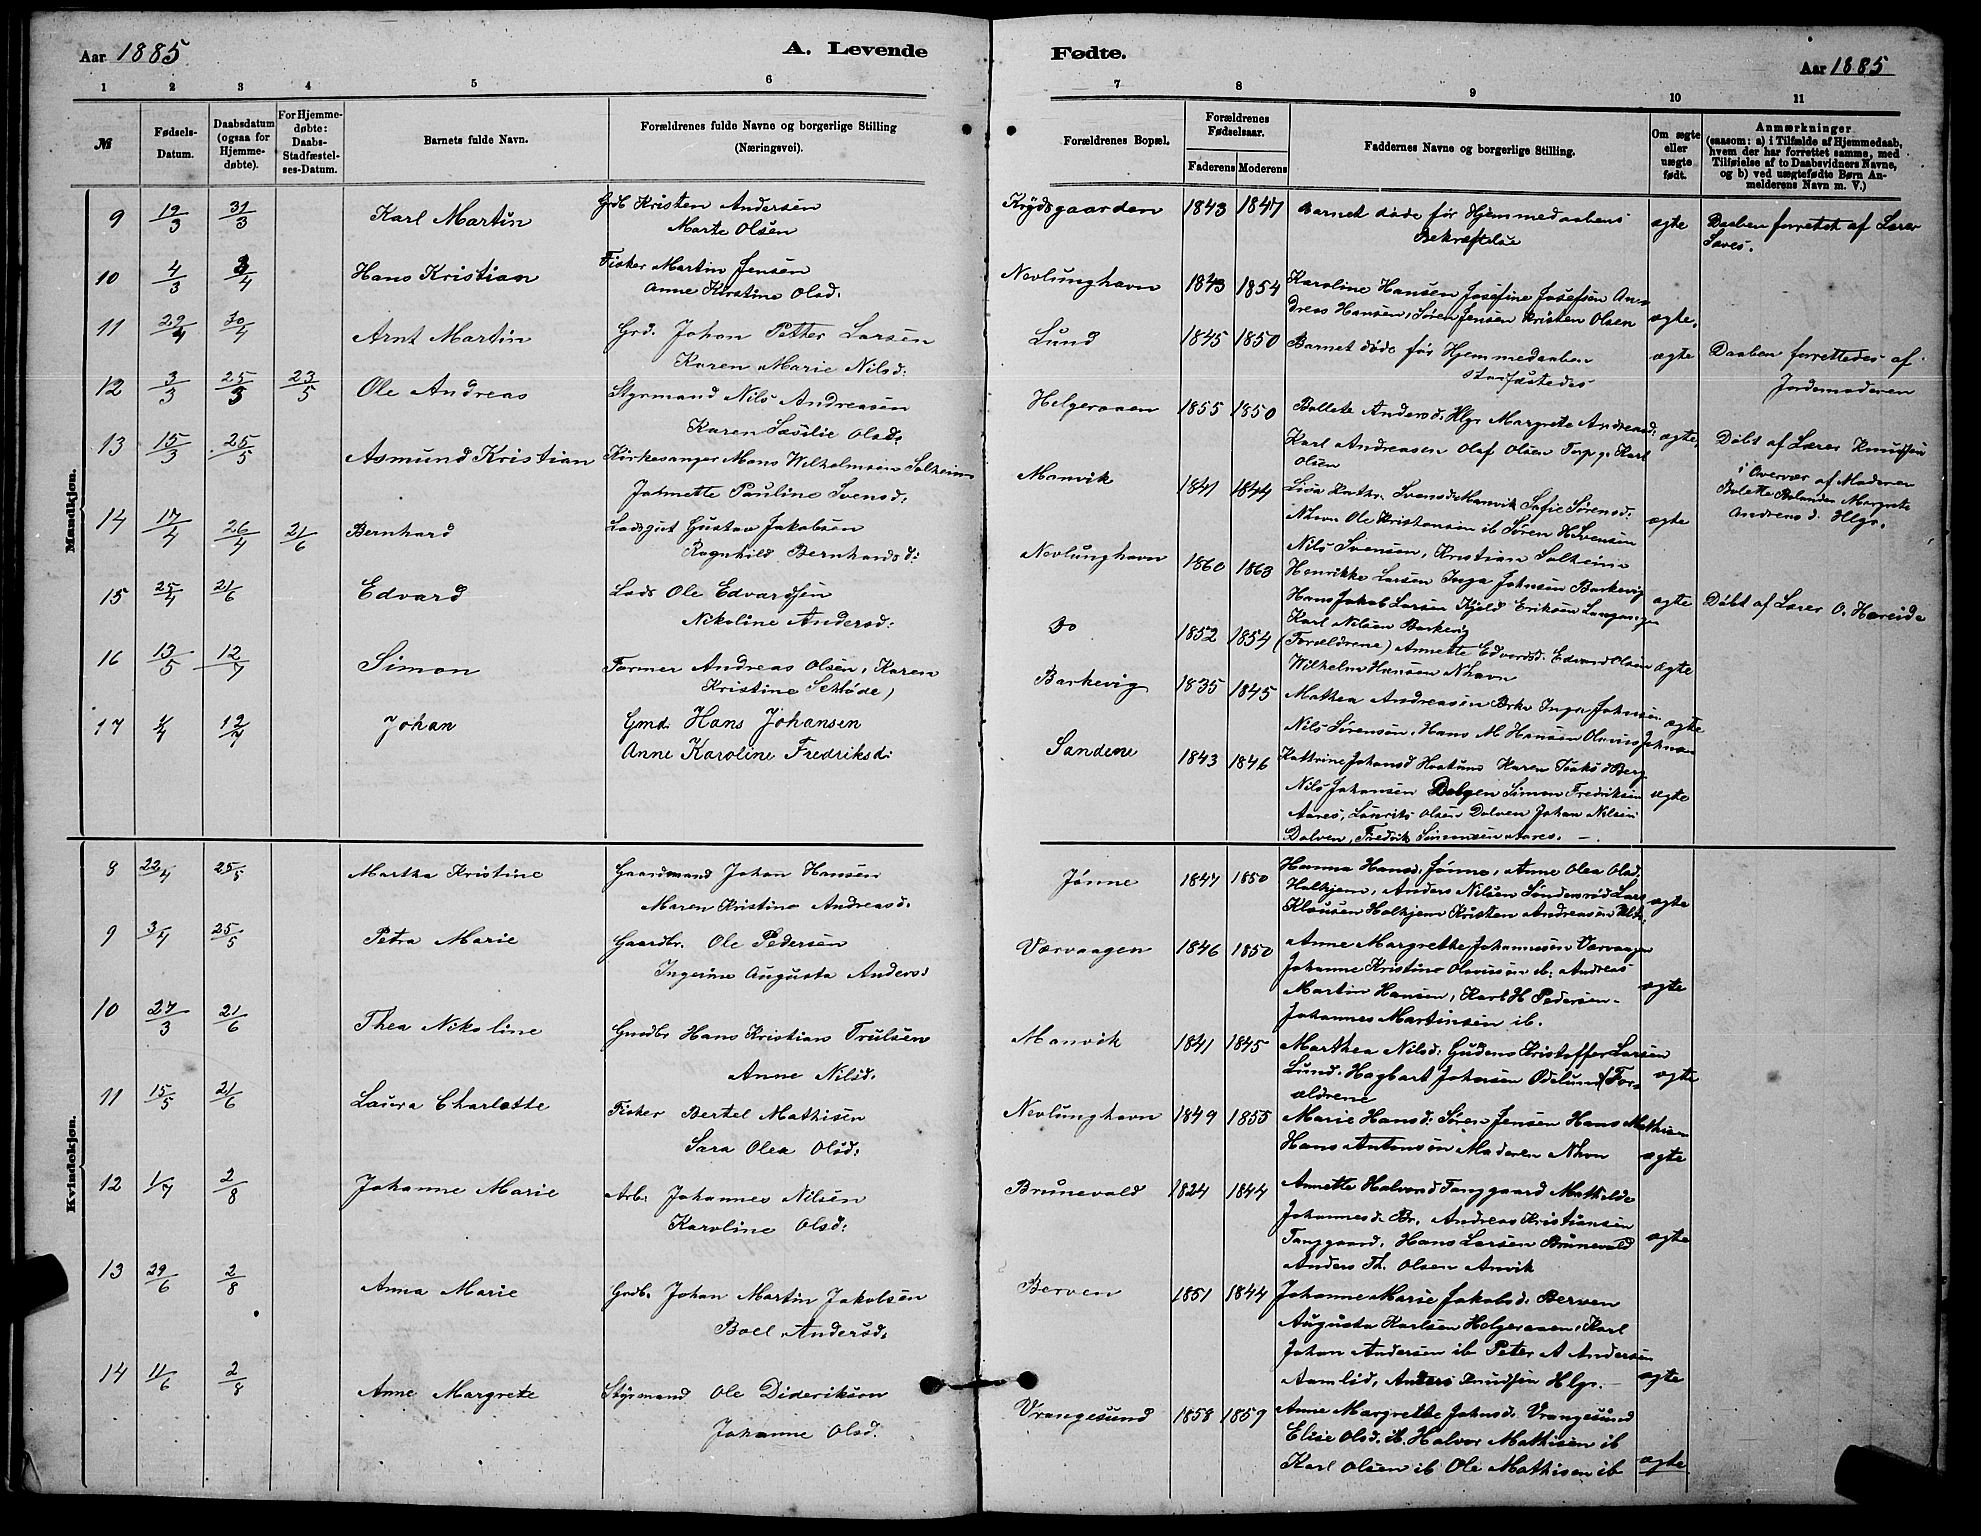 Aar 1885
A. Levende
Fødte.
Aar 1885
1 2 3 4 5 6
7 8 9 10 11
№
Fødsels-Datum.
Daabsdatum (ogsaa for Hjemmedøbte).
For Hjemmedøbte: Daabs-Stadfæstelses-Datum.
Barnets fulde Navn.
Forældrenes fulde Navne og borgerlige Stilling (Næringsvei).
Forældrenes Bopæl.
Forældrenes Fødselsaar.
Faderens Moderens
Faddernes Navne og borgerlige Stilling.
Om ægte eller uægte født.
Anmærkninger
(saasom: a) i Tilfælde af Hjemmedaab,
hvem der har forrettet samme, med
Tilføielse af to Daabsvidners Navne,
og b) ved uægtefødte Børn Anmelderens Navn m. V.)
Mandkjøn.
9 19/3 31/3 Karl Martin Grdb Kristen Andersen
Marte Olsen
10 4/3 3/4 Hans Kristian Fisker Martin Jensen
Anne Kirstine Olsd:
11 29/4 30/4 Arnt Martin Grd. Johan Petter Larsen
Karen Marie Nilsd:
12 3/3 25/3 23/5 Ole Andreas Styrmand Nils Andreasen
Karen Sesilie Olsd.
13 15/3 25/5 Asmund Kristian Kirkesanger Mons Wilhelmsen Solheim
Johnette Pauline Svensd.
14 17/4 26/4 21/6 Bernhard Lodsgut Gustav Jakobsen
Ragnhild Bernhardsd:
15 25/4 21/6 Edvard Lods Ole Edvardsen
Nikoline Andersd:
16 13/5 12/7 Simon Former Andreas Olsen, Karen
Kristine Schøde)
17 4/4 12/7 Johan Gmd. Hans Johansen
Anne Karoline Fredriksd:
Krydsgaarden 1843 1847 Barnet døde før Hjemmedaabens
Bekræftelse ægte Daaben forrettet af Lærer
Nevlunghavn 1843 1854 Karoline Hansen Josefine Josefsen An-
dreas Hansen, Søren Jensen Kristen Olsen ægte.
Lund 1845 1850 Barnet døde før Hjemmedaaben
stadfæstedes ægte Daaben forrettedes af
Jordemoderen
Helgeraaen 1855 1850 Bollete Andersd. Hlgr Margrete Andreasd:
Karl Andreasen Olaf Olsen Karl
Olsen ægte, Døbt af Lærer Knudsen
i Overvær af Moderen
Andreasd. Hlgr.
Manvik 1841 1844 Svensd. Manvik Sofie Sørensd:
Nhavn Ole Kristensen ib Søren H Svensen
Nils Svensen, Kristian Solheim ægte
Nevlunghavn 1860 1863 Henrikke Larsen Inga Johnsen Barkevig
Hans Jakob Larsen Kjeld Eriksen
Karl Nilsen Barkevig ægte Døbt af Lærer O. Hæreide
Do 1852 1854 (Forældrene) Annette Edvardsd. Edvard Olsen
Wilhelm Hansen Nhavn ægte
Barkevig 1835 1845 Mathea Andreasen Brkv Inga Johnsen
Nils Sørensen, Hans M Hansen Johnsen ægte
Sandene 1843 1846 Kathrine Johansd Karen Isaksd Berg
Nils Johansen Simon Fredriksen
Aares, Laurits Olsen Dolven Johan Nilsen
Dolven, Fredrik Simonsen Aares. — ægte
Kvindekjøn.
8 22/4 25/5 Martha Kristine Gaardmand Johan Hansen
Maren Kristine Andreasd.
9 3/4 25/5 Petra Marie Gaardbr. Ole Pedersen
Ingerine Augusta Anders:
10 27/3 21/6 Thea Nikoline Gmdbr Hans Kristian Trulsen
Anne Nilsd.
11 15/5 21/6 Laura Charlotte Fisker Bertel Mathisen
Sara Olea Olsd:
12 1/7 2/8 Johanne Marie Arb. Johannes Nilsen
Karoline Olsd:
13 29/6 2/8 Anna Marie Grdb. Johan Martin Jakobsen
Boel Andersd.
14 11/6 2/8 Anne Margrete Styrmand Ole Dideriksen
Johanne Olsd.
Jønne 1847 1850 Hanna Hansd. Jønne, Anne Olea Olsd.
Halkjem, Anders Nilsen Søndersrød Lars
Klausen Halkjem Kristen Andreasen ægte
Værvaagen 1846 1850 Anne Margrethe Johannesen Værvaagen
Johanne Kristine Olavesen ib. Andreas
Martin Hansen, Karl H Pedersen.
Johannes Martinsen ib. ægte
Manvik 1841 1845 Marthea Nilsd: Gudens Kristoffer Larsen
Lund. Hagbart Johnsen Odelund (For-
ældrene ægte
Nevlunghavn 1849 1855 Marie Hansd. Søren Jensen Hans Mathisen
Hans Antonsen Moderen Nhvn ægte
Brunevald 1824 1844 Annette Halvorsd Tanggaard Mathilde
Johannesd. Br. Andreas Kristiansen
Tanggaard, Hans Larsen Brunevald
Anders Th. Olsen Anvik ægte
Berven 1851 1844 Johanne Marie Jakobsd. Berven
Augusta Karlsen Helgeraaen, Karl
Johan Andersen ib Peter A Andersen
Aamlid, Anders Knudsen Hlgr. — ægte
Vrangesund 1858 1859 Anne Margrethe Johnsd. Vrangesund
Elise Olsd. ib. Halvor Mathisen ib
Karl Olsen ib Ole Mathisen ib ægte